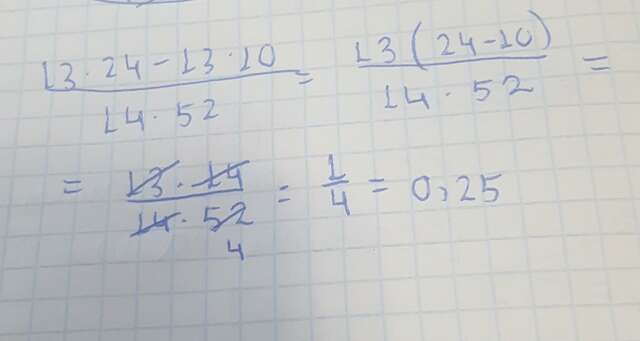 13·24-13·10 / 14·52 = 13(24-10) / 14·52 =
= 13·14 / 14·52 4 = 1/4 = 0,25